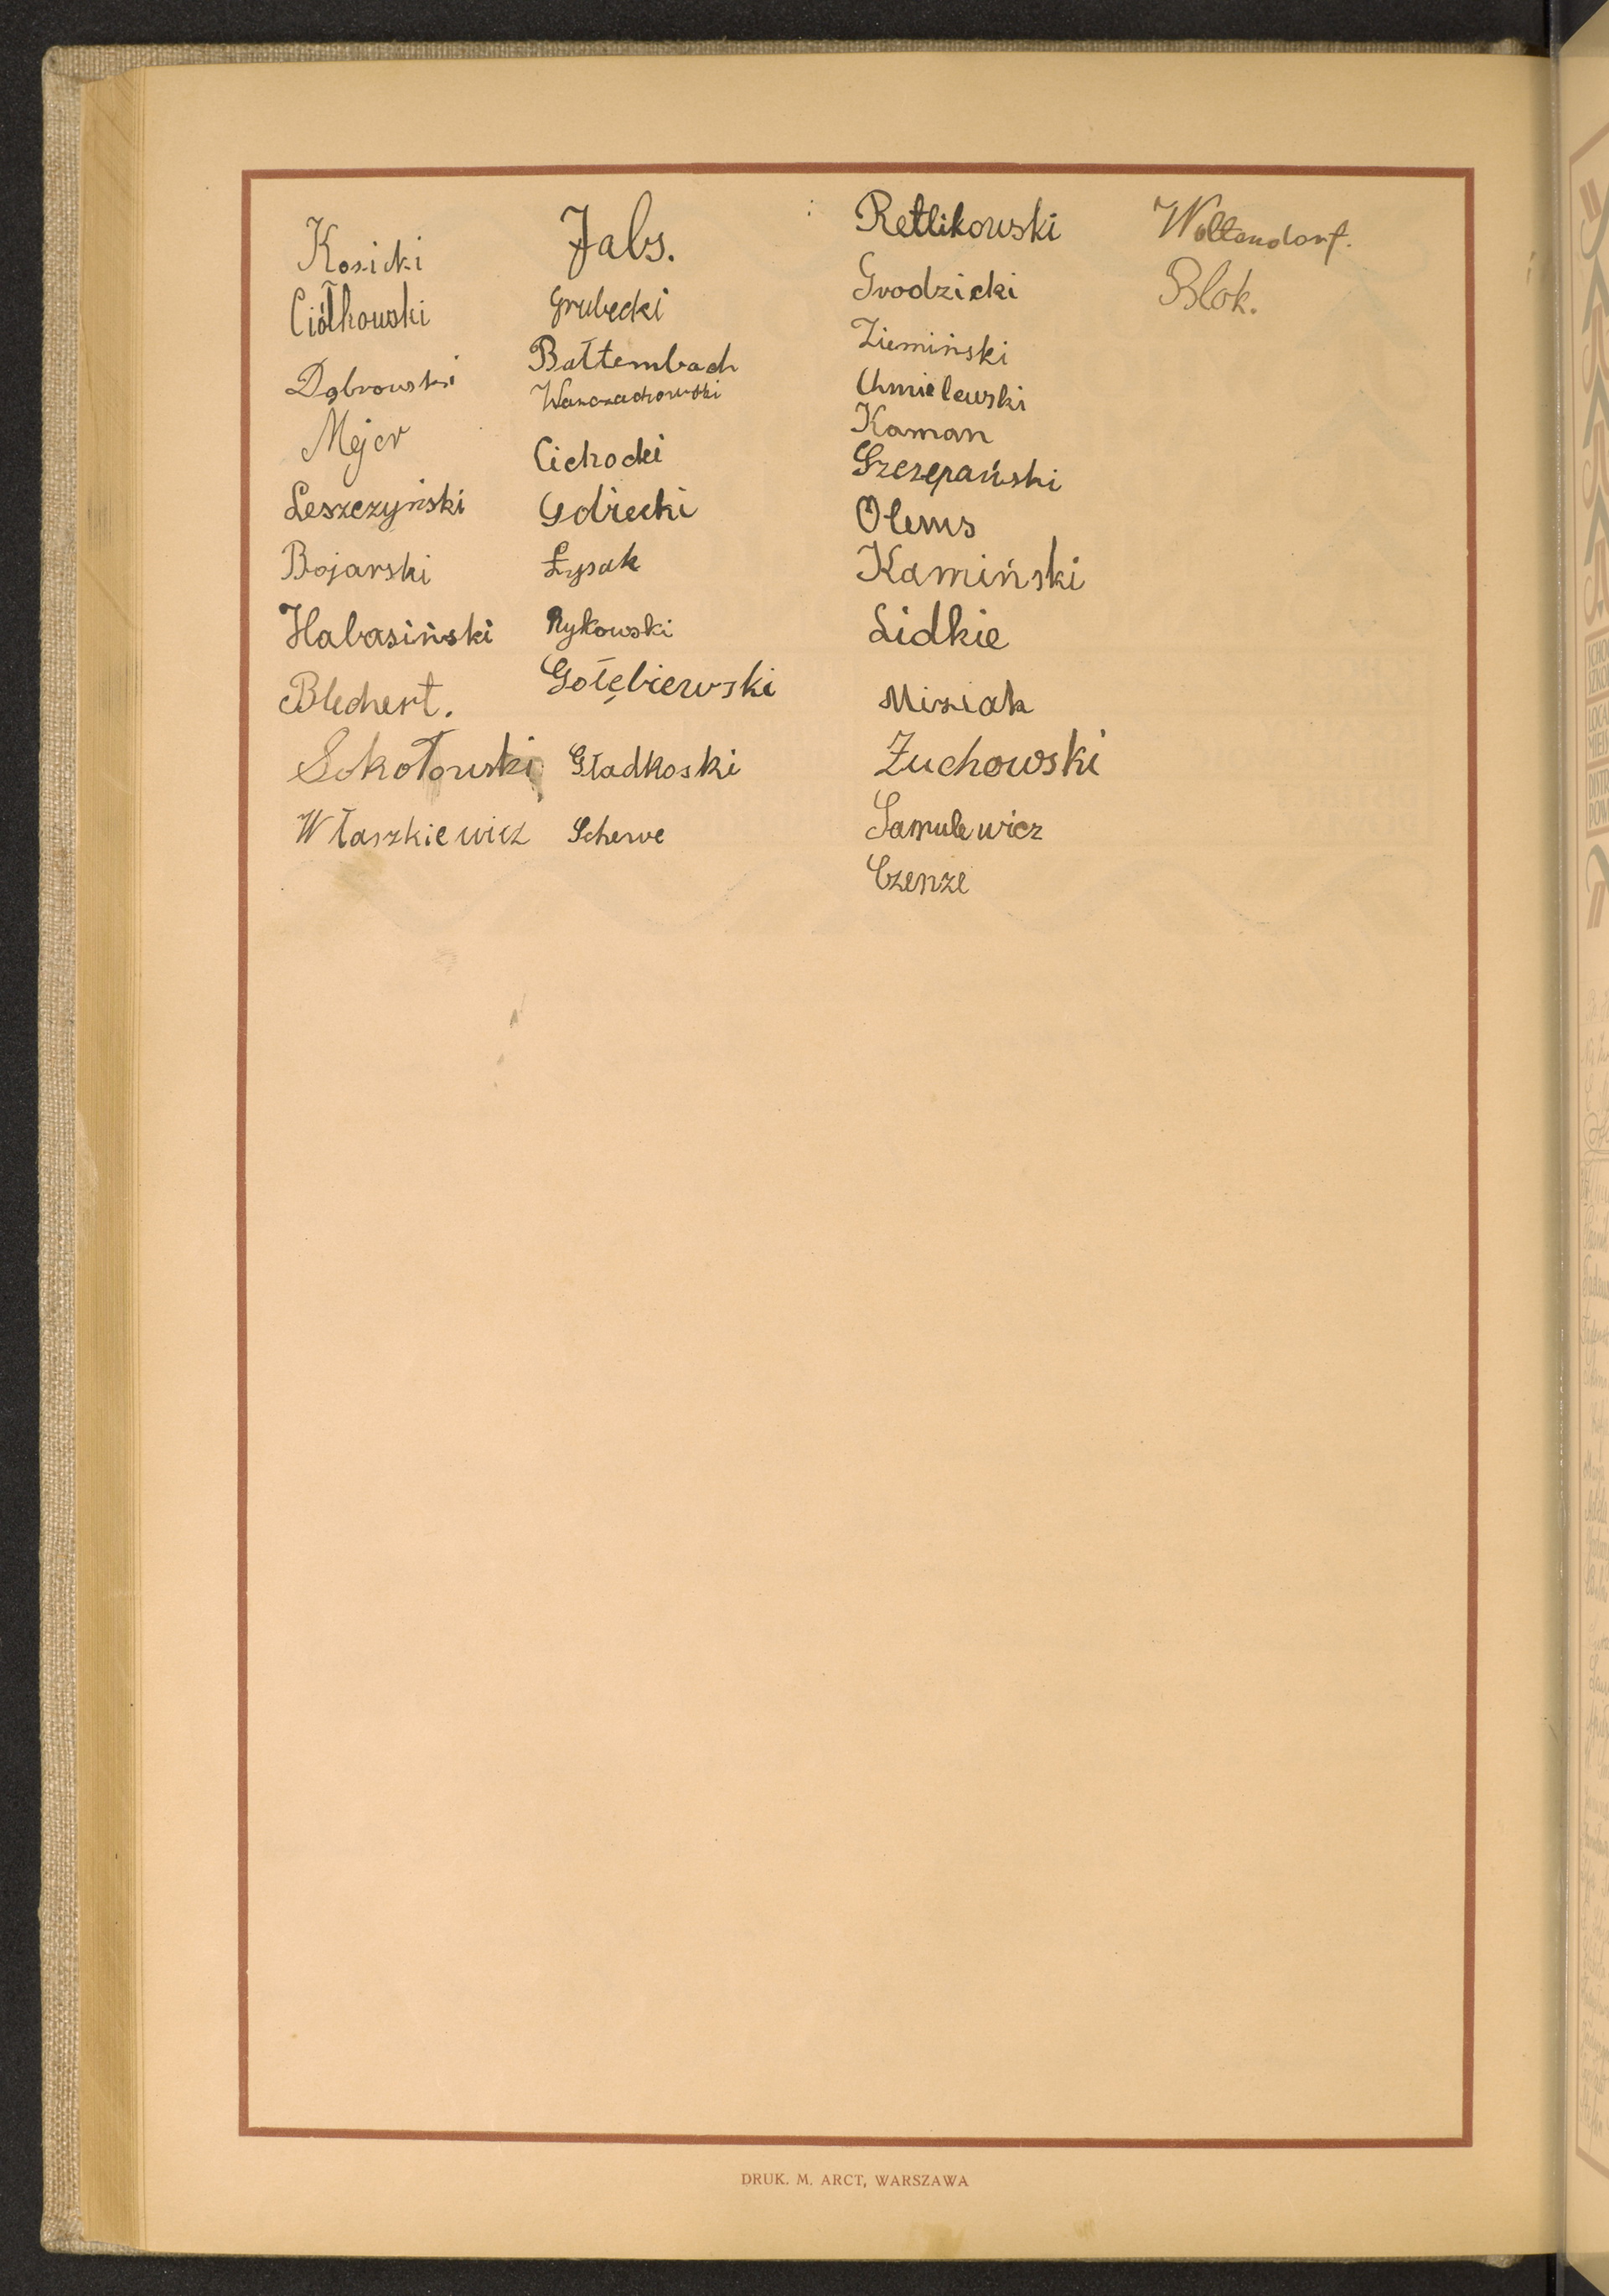 Kosicki
Ciółkowski
Dąbrowski
Mejer
Leszczyński
Bojarski
Habasiński
Blechert.
Sokołowski
Właszkiewicz
Jabs.
Grubecki
Bałtembach
Cichocki
Godzecki
Łysak
Rykowski
Gołębiewski
Gładkoski
Scherve
Retlikowski
Grodzicki
Ziemiński
Chmielewski
Kaman
Szczepański
Olems
Kamiński
Lidkie
Misiak
Żuchowski
Samulewicz
Czenze
Woltendorf.
Blok.
DRUK. M. ARCT, WARSZAWA